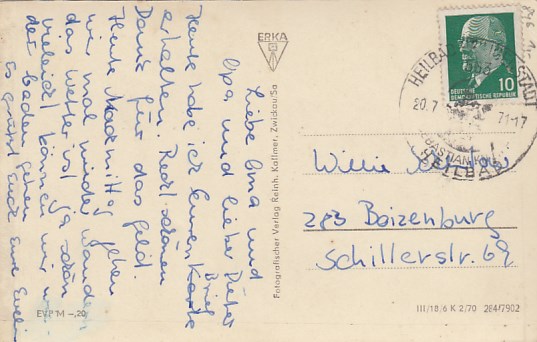 Liebe Oma und
Opa und lieber Dieter
Heute habe ich Euren Brief Karte
erhalten. Recht schönen
Dank für das Geld.
Heute Nachmittag gehen
wir mal wieder wandern
das Wetter ist ja schön
vieleicht können wir
der baden gehen
Es grüßt Euch Eure Evelin
EVP M -,20
ERKA
Fotografischer Verlag Reinh. Kallmer, Zwickau/Sa
HEILBAD
STADT
20.7. 71-17
HEILBAD
DEUTSCHE
DEMOKRATISCHE REPUBLIK
10
Willi
283 Boizenburg
Schillerstr. 69
III/18/6 K 2/70 284/7902